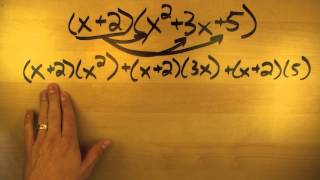 (x+2)(x²+3x+5)
(x+2)(x²)+(x+2)(3x)+(x+2)(5)